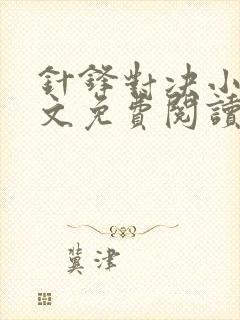 針鋒對决小
文免費閱讀
冀津